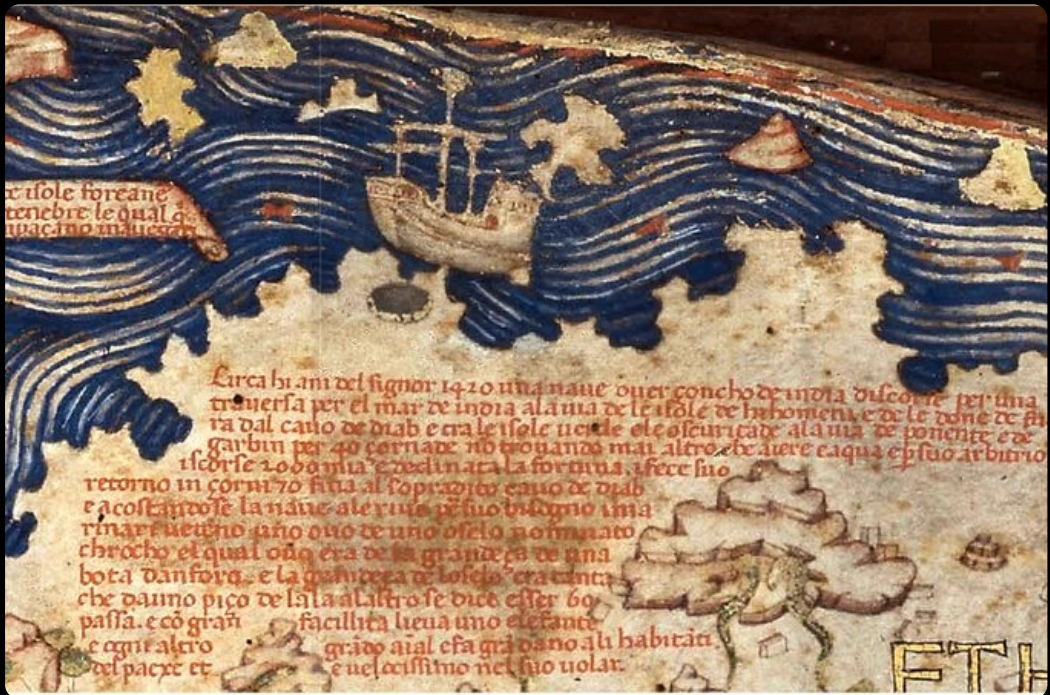 te isole foreane
tenebre le qual q̃
Circa hi ani del signor 1420 una naue ouer çoncho de india discorse per una
trauersa per el mar de india ala uia de le isole de hi homeni e de le done de fu
ra dal cauo de diab e tra le isole uerde e le oscuritade ala uia de ponente e de
garbin per 40 çornade nõ trouando mai altro che aiere e aqua e ꝑ suo arbitrio
iscorse 2000 mia e declinata la fortuna i fece suo
retorno in çorni 70 fina al sopradito cauo de diab
e acostandose la naue ale riue ꝑ suo bisogno i ma
rinari uedeno uno ouo de uno oselo nominato
chrocho el qual ouo era de la grandeça de una
bota danfora e la grandeça de loselo era tanta
che dauno piço de lala alaltro se dice esser 60
passa. e cõ gran facilita lieua uno elefante
e ogni altro grãdo aĩal e fa grã dano ali habitãti
del paexe et e uelocissimo nel suo uolar.
ETH